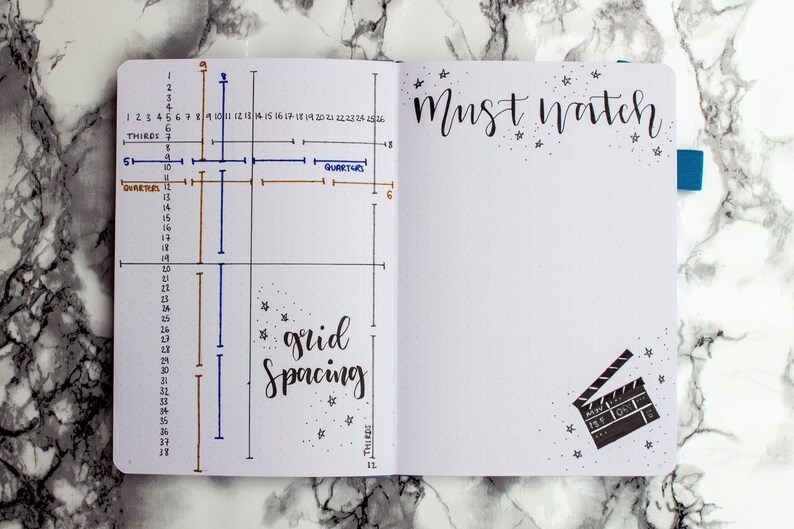 9
8
1
2
3
4
1 2 3 4 5 6 7 8 9 10 11 12 13 14 15 16 17 18 19 20 21 22 23 24 25 26
5
6
THIRDS 7
8 8
5 9
10 QUARTERS
11
QUARTERS 12
6
13
14
15
16
17
18
19
20
21
22
23
24
25
26
27
28
29
30
31
32
33
34
35
36
37
38
grid
spacing
THIRDS
12
Must Watch